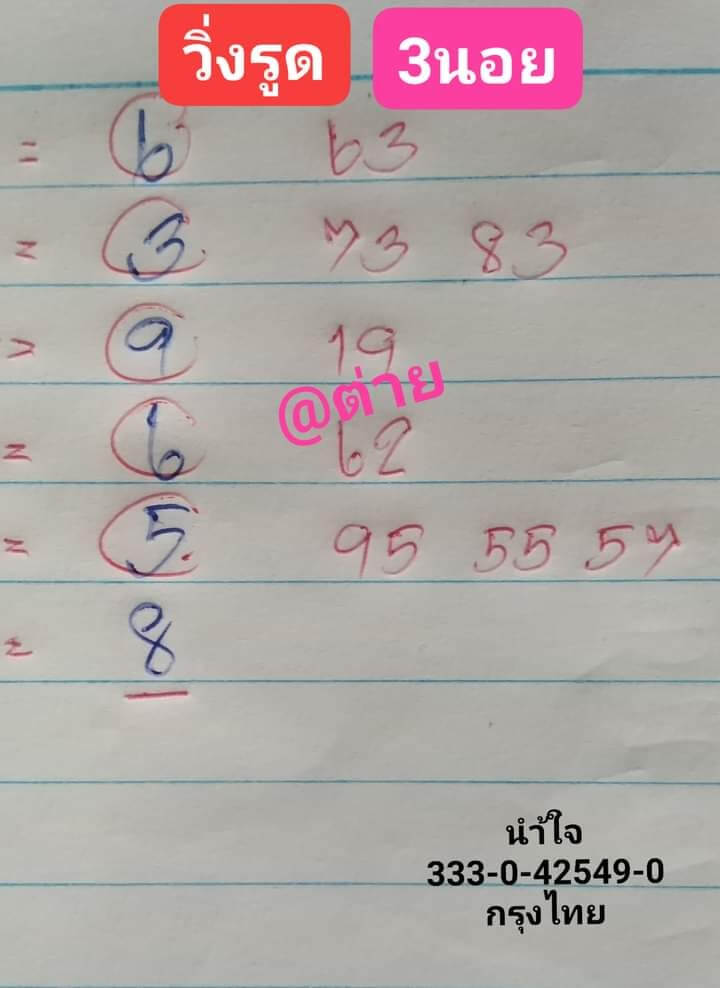 วิ่งรูด 3นอย
= 6 63
= 3 73 83
> 9 19
@ต่าย
= 6 62
= 5 95 55 57
= 8
นำ้ใจ
333-0-42549-0
กรุงไทย